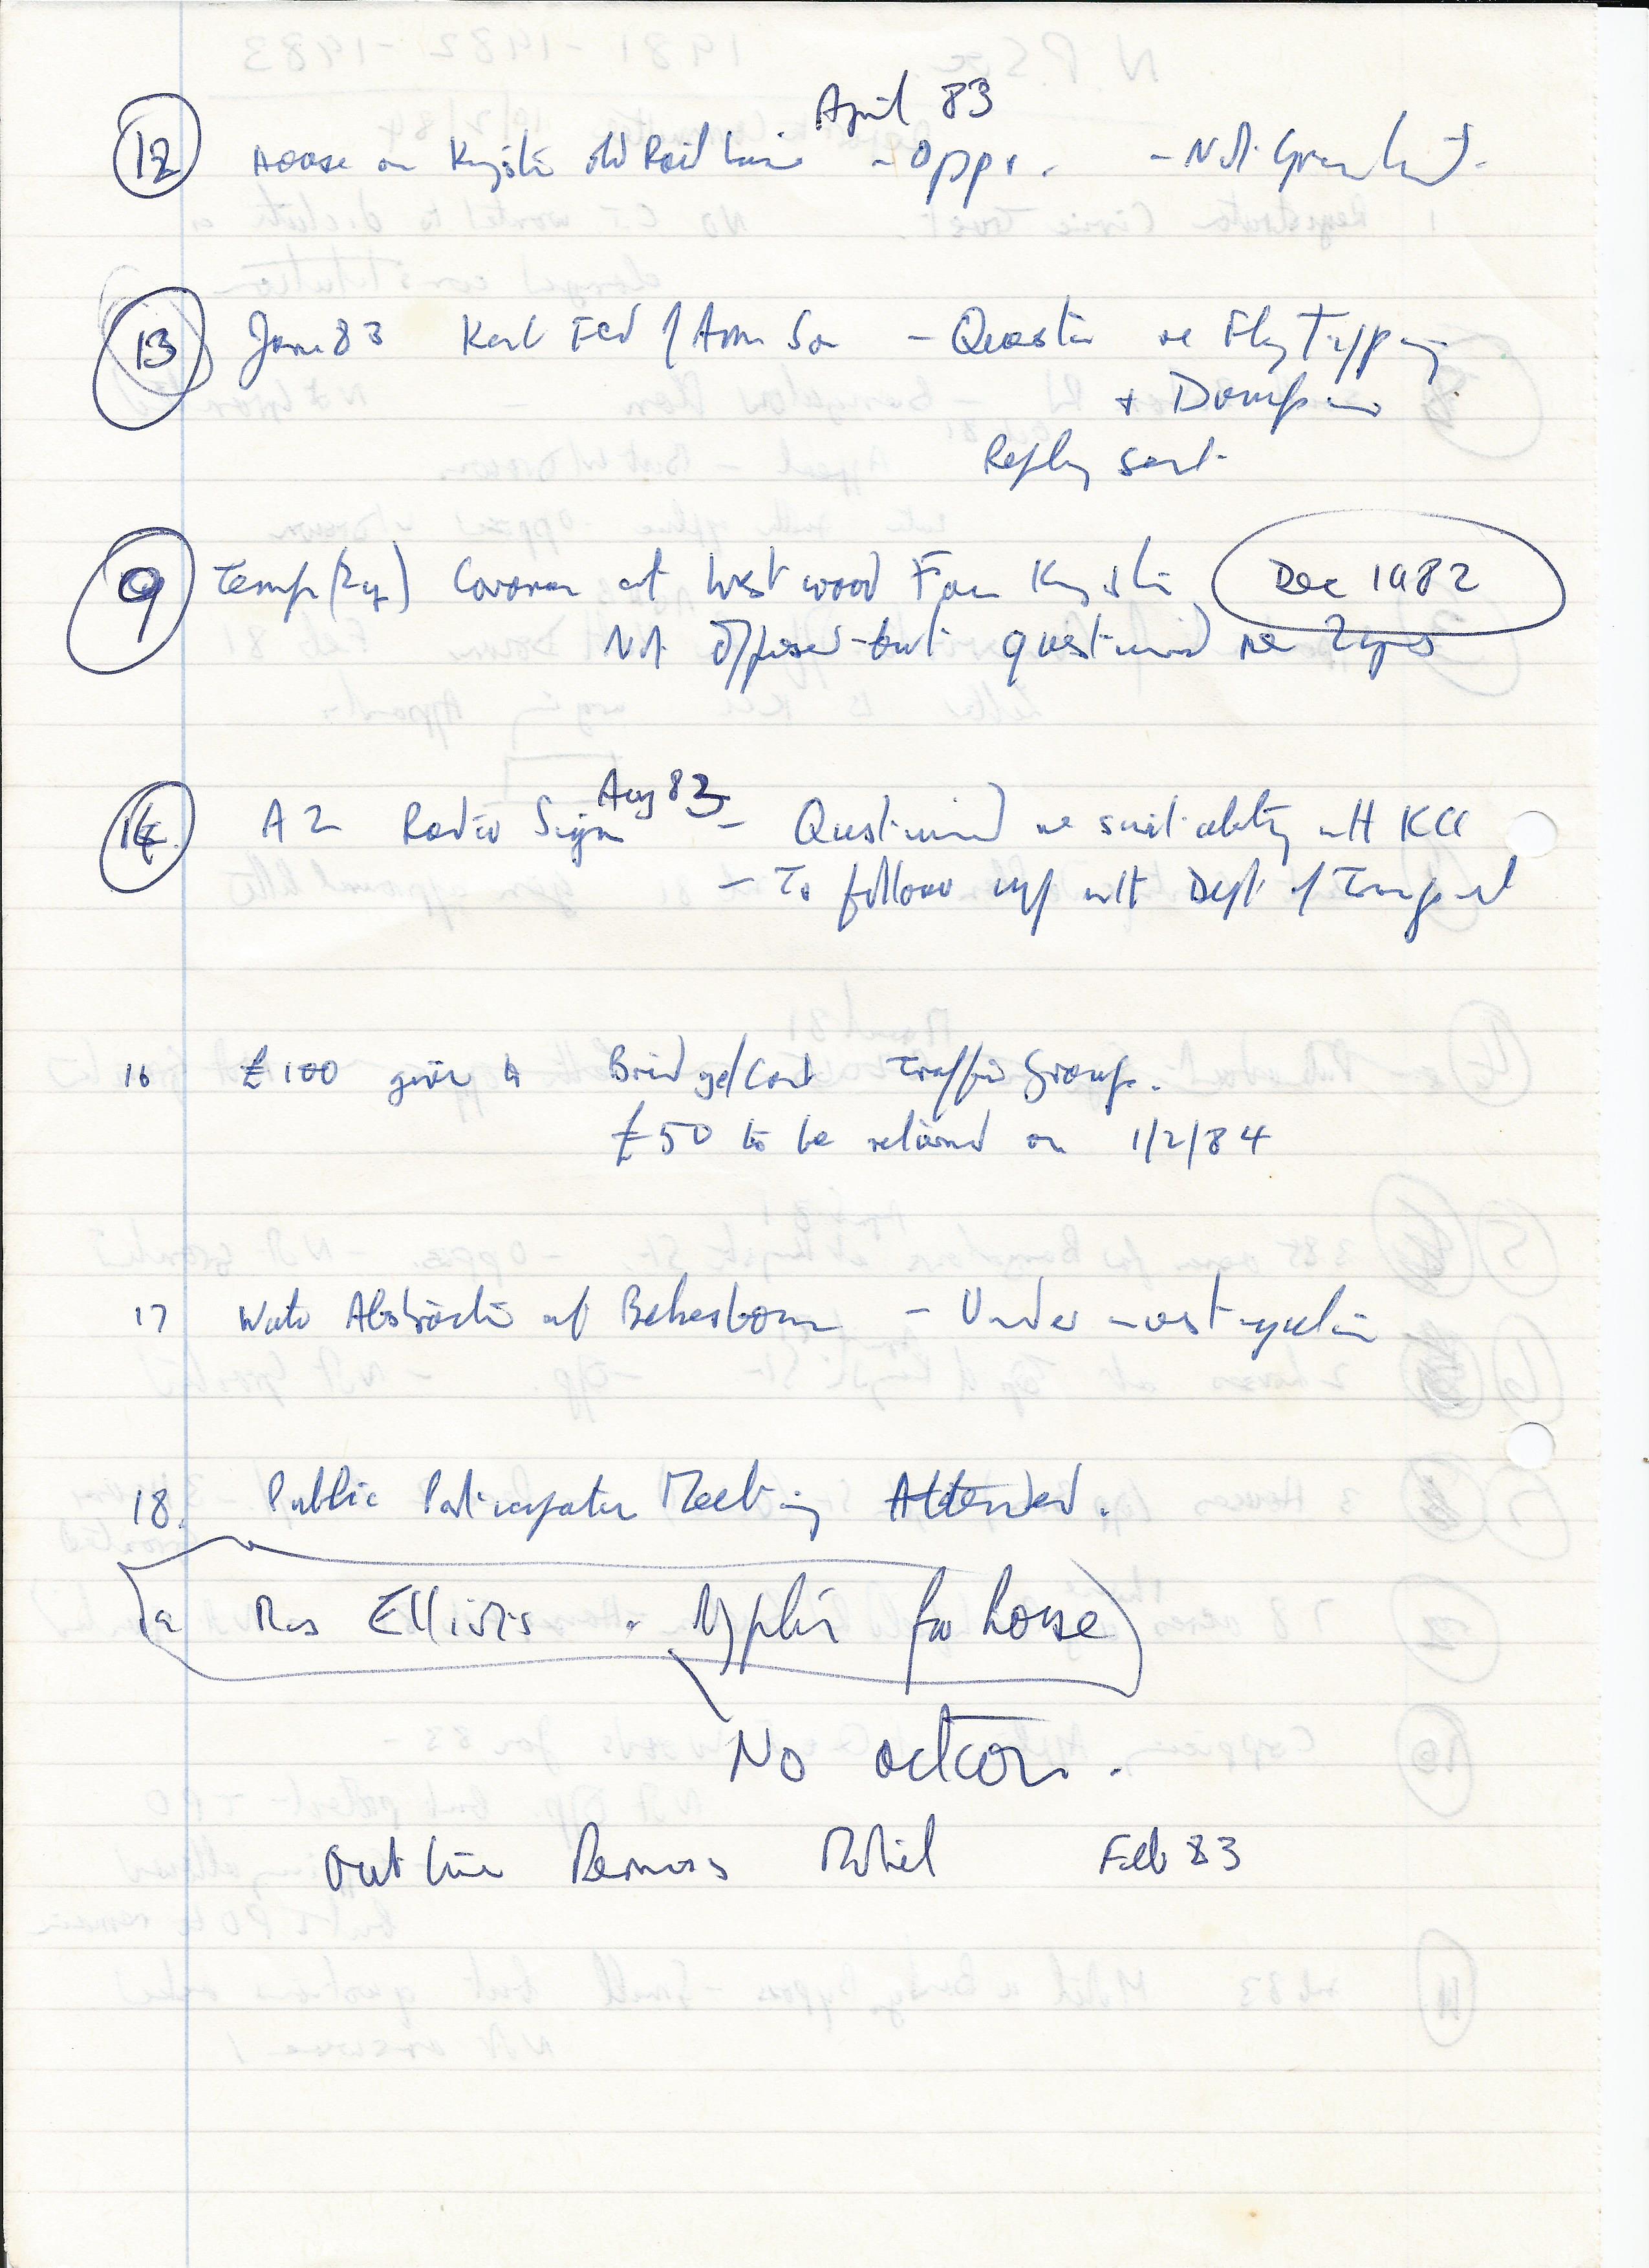 April 83
12 House on Kingston old Rail Line - Oppo. - Not Granted.
13 June 83 Kent Fed of Amm Soc - Question re Fly Tipping
+ Dumping
Reply sent.
9 Temp (2 yr) Caravan at Westwood Farm Kingston Dec 1982
Not Opposed - but questioned re 2 yrs
Aug 83
14 A2 Radio Sign - Questioned re suitability with KCC
- To follow up with Dept of Transport
16 £100 given to Bridge/Cant Traffic Group.
£50 to be returned on 1/2/84
17 Water Abstraction at Bekesbourne - Under investigation
18. Public Participation Meeting Attended.
19 Mrs Elliots . for house
No action.
Outline Motel Feb 83